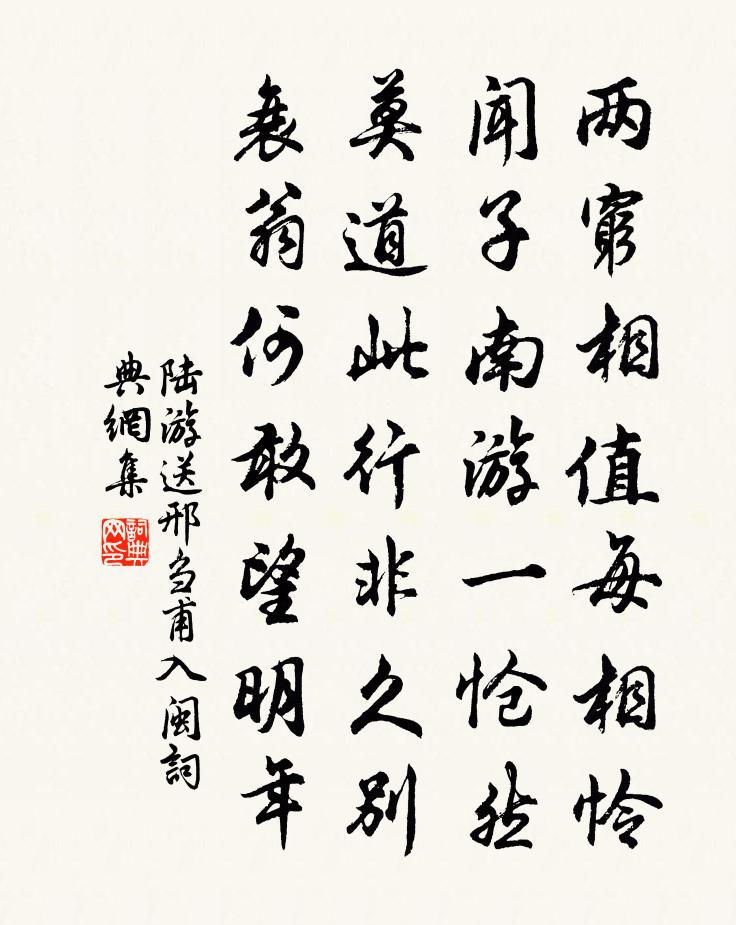 两窮相值每相怜
闻子南游一怆然
莫道此行非久别
衰翁何敢望明年
陆游送邢刍甫入闽詞
典網集
詞典网印